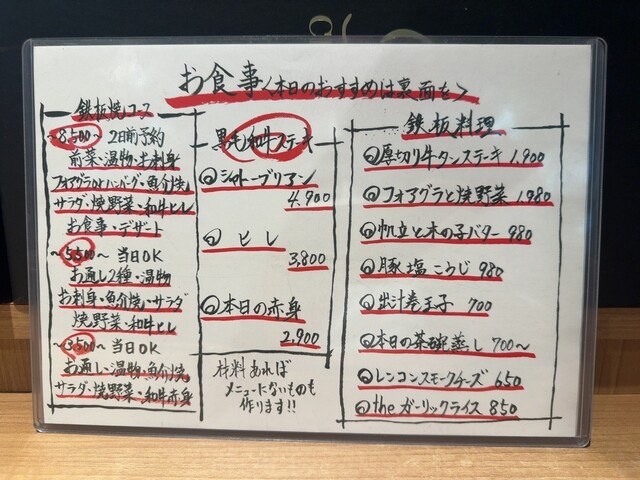 お食事<本日のおすすめは裏面も>
鉄板焼コース
~8,500~ 2日前予約
前菜・温物・お刺身
フォアグラのハンバーグ・魚介焼
サラダ・焼野菜・和牛ヒレ
お食事・デザート
~5,500~ 当日OK
お通し2種・温物
お刺身・魚介焼・サラダ
焼野菜・和牛ヒレ
~3,500~ 当日OK
お通し・温物・魚介焼
サラダ・焼野菜・和牛赤身
黒毛和牛ステーキ
シャトーブリアン
4,900
ヒレ
3,800
本日の赤身
2,900
材料あれば
メニューにないものも
作ります!!
鉄板料理
厚切り牛タンステーキ 1,900
フォアグラと焼野菜 1,980
帆立と木の子バター 980
豚塩こうじ 980
出汁巻玉子 700
本日の茶碗蒸し 700~
レンコンスモークチーズ 650
theガーリックライス 850